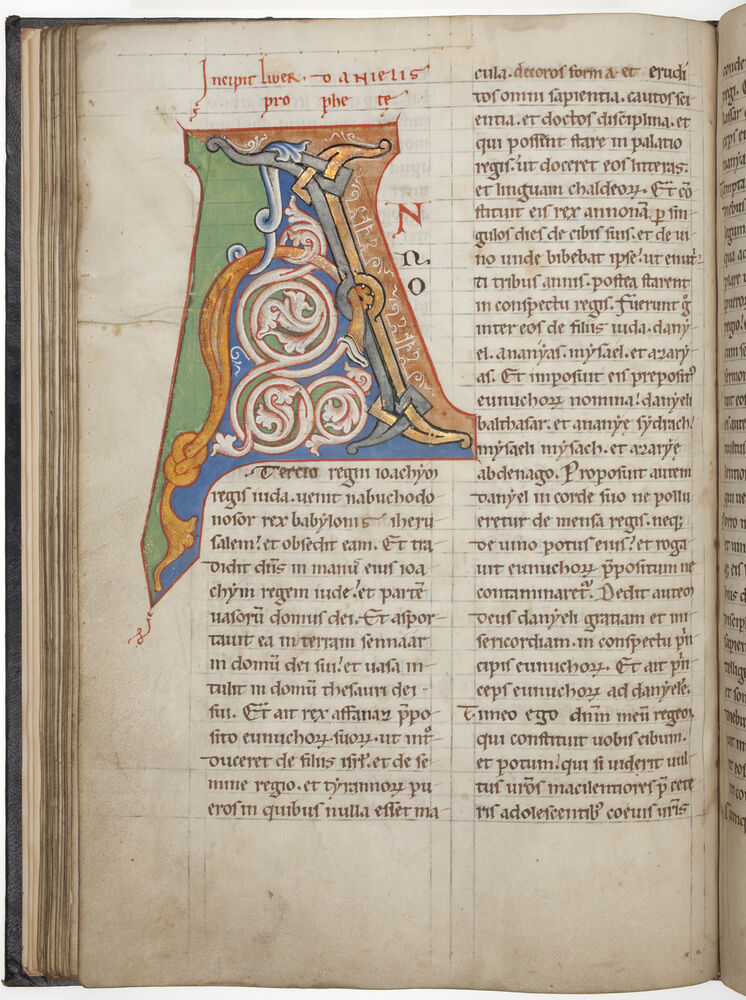 Incipit liber danielis
prophete
ANno
Tercio regni ioachym
regis iuda. uenit nabuchodo
nosor rex babylonis iheru
salem! et obsedit eam. Et tra
didit dn̄s in manū eius ioa
chym regem iude! et partē
uasorū domus dei. Et aspor
tauit ea in terram sennaar
in domū dei sui! et uasa in
tulit in domū thesauri dei
sui. Et ait rex p̄po
sito eunuchoꝝ suoꝝ. ut int̄
duceret de filiis isrl̄. et de se
mine regio. et tyrannoꝝ pu
eros in quibus nulla esset ma
cula. decoros forma. et erudi
tos omni sapientia. cautos sci
entia. et doctos disciplina. et
qui possent stare in palatio
regis. ut doceret eos litteras.
et linguam chaldeoꝝ. Et cō
stituit eis rex annonā. p̱ sin
gulos dies de cibis suis. et de ui
no unde bibebat ipse! ut enut
ti tribus annis. postea starent
in conspectu regis. Fuerunt g̊
inter eos de filiis iuda. dany
el. ananyas. mysael. et azary
as. Et imposuit eis preposit᷒
eunuchoꝝ nomina! danyeli
balthasar. et ananye sydrach!
mysaeli mysach. et azarye
abdenago. Proposuit autem
danyel in corde suo ne pollu
eretur de mensa regis. neq;
de uino potus eius! et roga
uit eunuchoꝝ p̄positum ne
contaminaret᷑. Dedit autem
deus danyeli gratiam et mi
sericordiam. in conspectu p̄n
cipis eunuchoꝝ. Et ait p̄n
ceps eunuchoꝝ ad danyelē.
Timeo ego dn̄m meū regem
qui constituit uobis cibum.
et potum! qui si uiderit uul
tus ur̄os macilentiores p̄ cete
ris adolescentib᷒ coeuis ur̄is